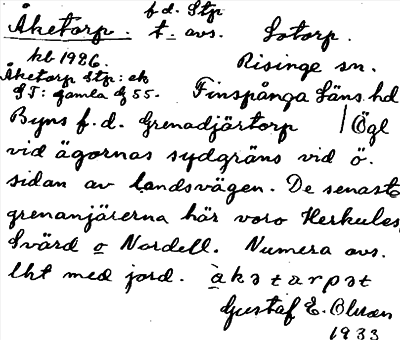 f.d. Stp
Åketorp. t. avs. Sotorp.
kb 1926. Risinge sn.
Åketorp Stp: ek
ST: gamla 55. Finspånga läns hd
Byns f.d. Grenadjärtorp / Ögl
vid ägornas sydgräns vid ö.
sidan av landsvägen. De senaste
grenanjärerna här voro Herkules,
Svärd o Nordell. Numera avs.
lht med jord. àkətarpət
Gustaf E. Olsson
1933